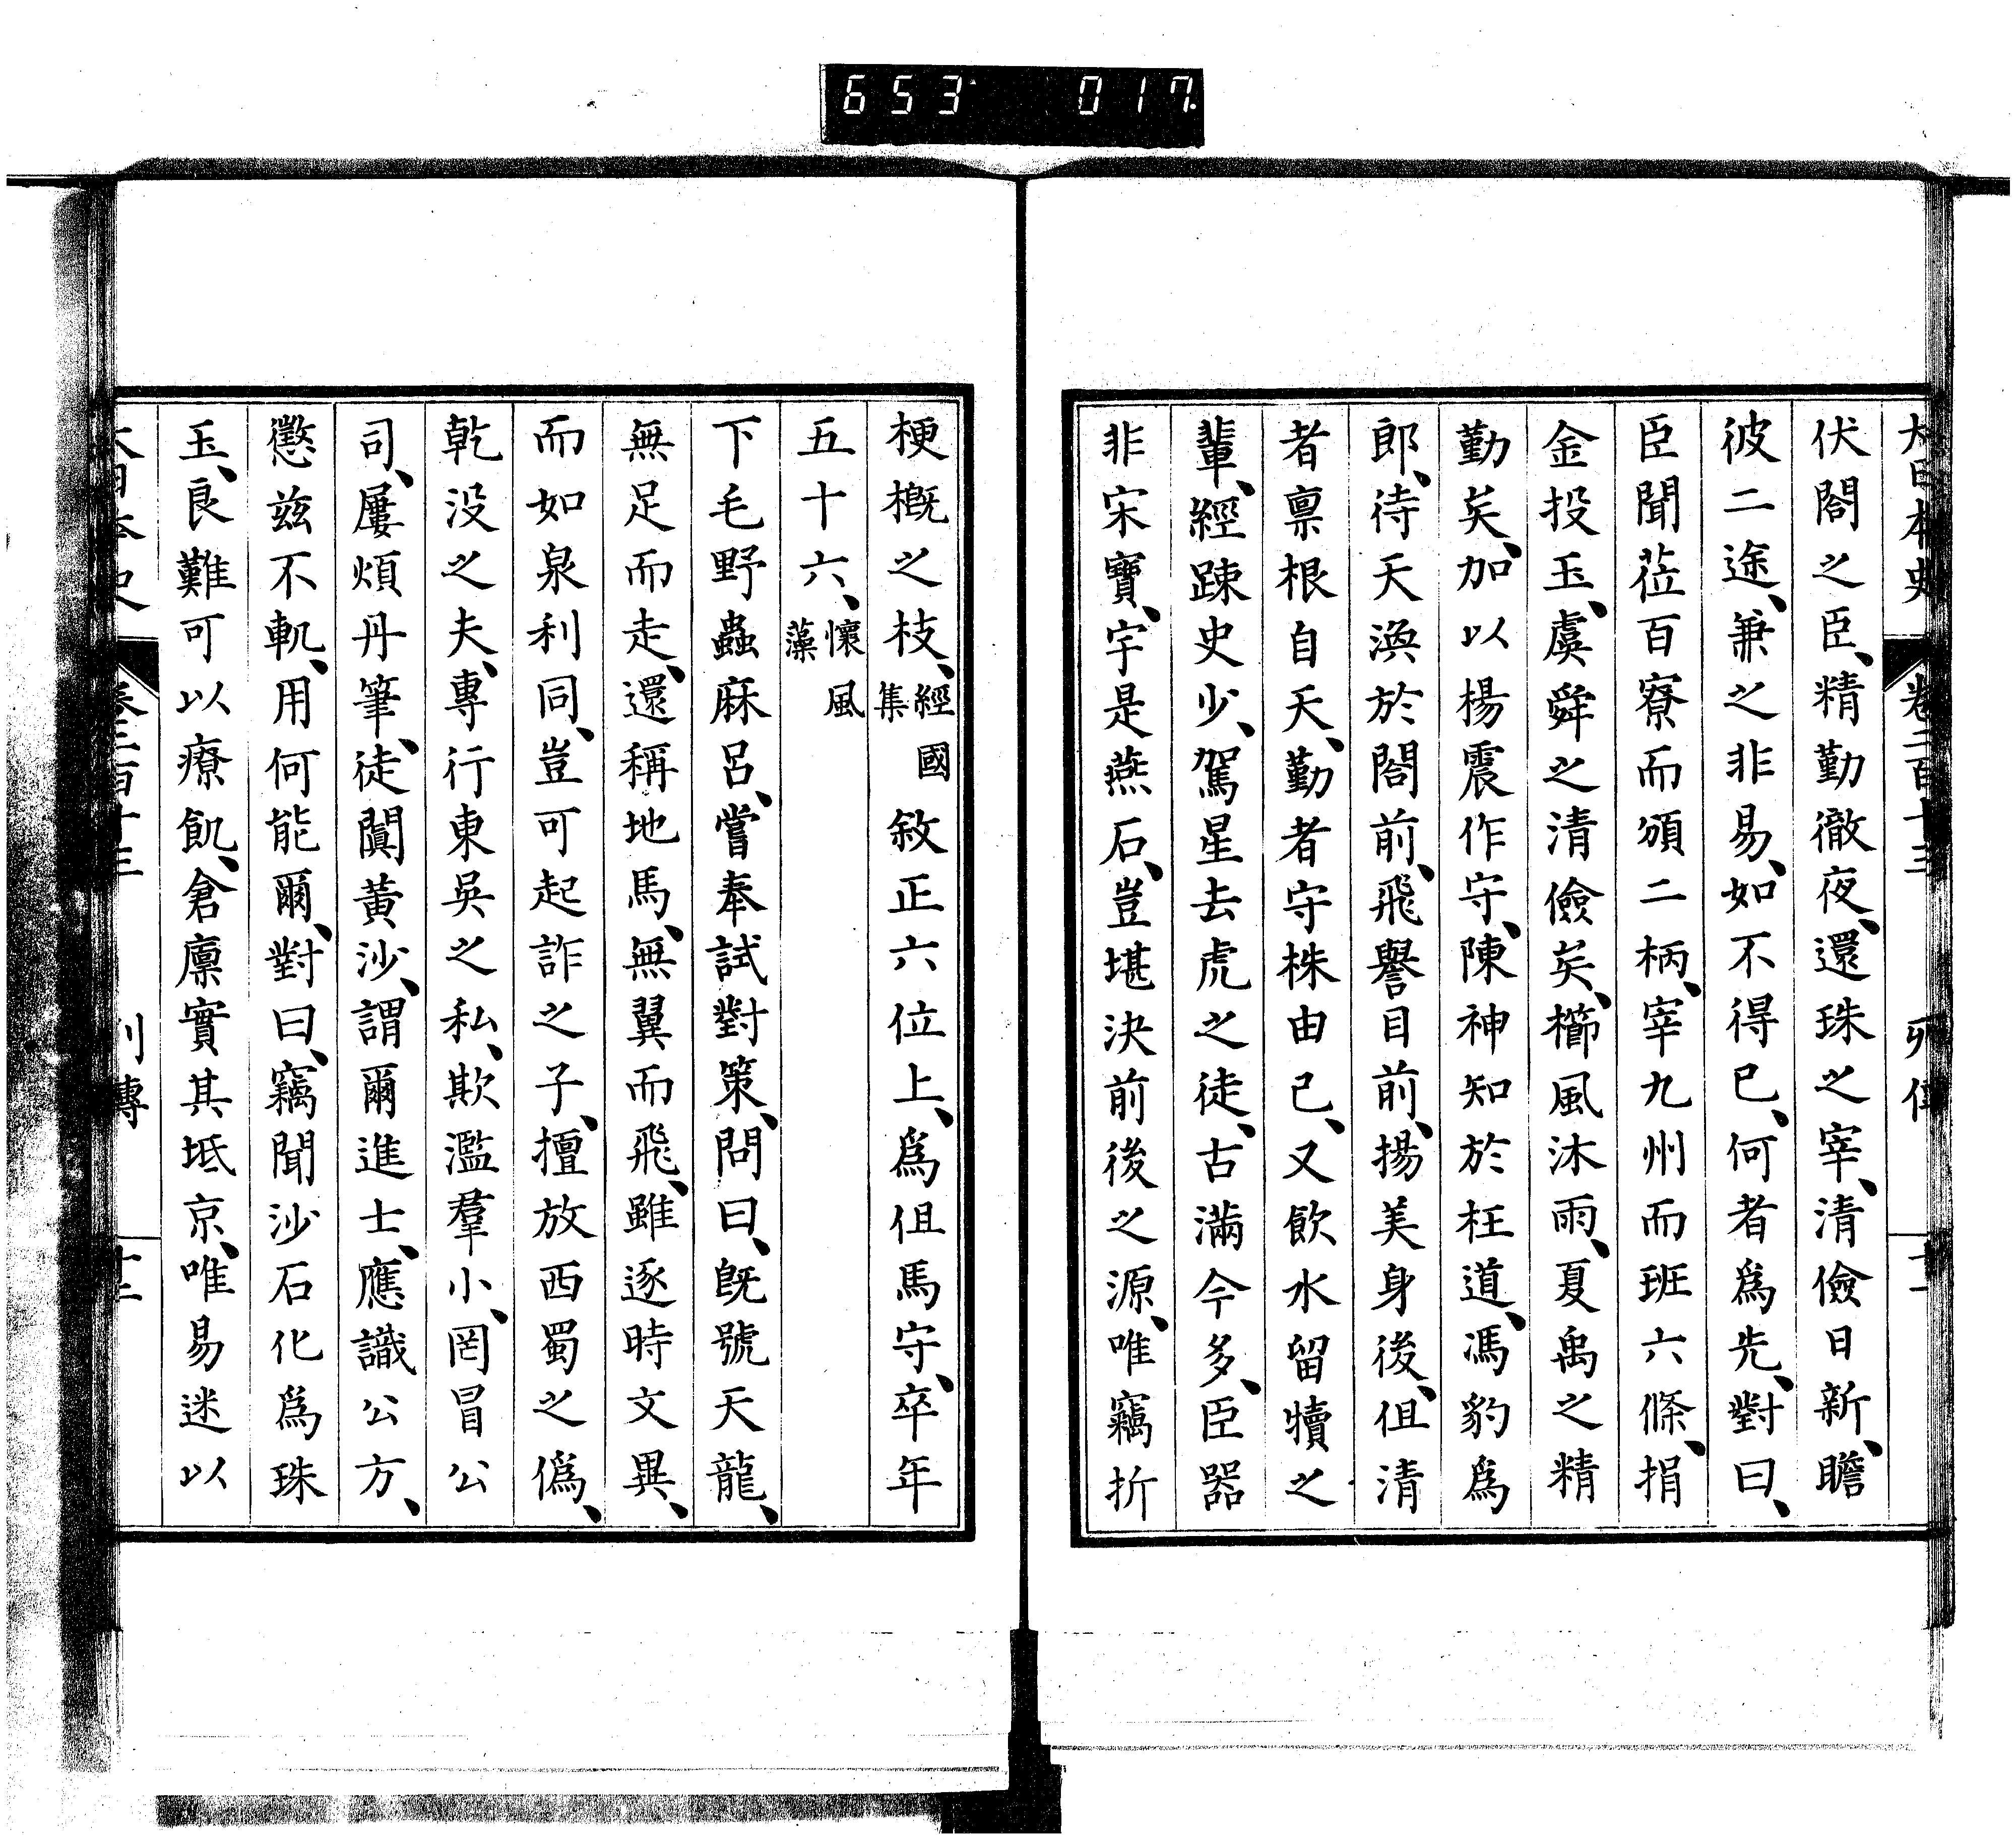 653 017
大日本史 卷二百十三 列傳 十一
伏閤之臣、精勤徹夜、還珠之宰、清儉日新、瞻
彼二途、兼之非易、如不得已、何者爲先、對曰、
臣聞莅百寮而頒二柄、宰九州而班六條、捐
金投玉、虞舜之清儉矣、櫛風沐雨、夏禹之精
勤矣、加以楊震作守、陳神知於枉道、馮豹爲
郎、待天渙於閤前、飛譽目前、揚美身後、但清
者禀根自天、勤者守株由己、又飲水留犢之
輩、經疎史少、駕星去虎之徒、古滿今多、臣器
非宋寶、宇是燕石、豈堪決前後之源、唯竊折
梗概之枝、經國集 敘正六位上、爲但馬守、卒年
五十六、懷風藻
下毛野蟲麻呂、嘗奉試對策、問曰、既號天龍、
無足而走、還稱地馬、無翼而飛、雖逐時文異、
而如泉利同、豈可起詐之子、擅放西蜀之僞、
乾没之夫、專行東吳之私、欺濫羣小、罔冒公
司、屢煩丹筆、徒闐黃沙、謂爾進士、應識公方、
懲茲不軌、用何能爾、對曰、竊聞沙石化爲珠
玉、良難可以療飢、倉廪實其坻京、唯易迷以
大日本史 卷二百十三 列傳 十二